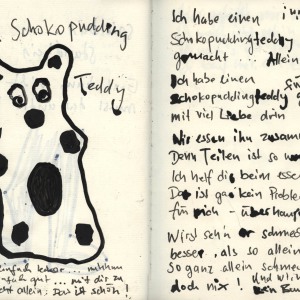 Schokopudding
Teddy
einfach lecker... mhhhm
einfach gut... mit dir zu
nicht allein: Das ist schön!
Ich habe einen
Schokopuddingteddy
gemacht... Allein
Ich habe einen
schokopuddingteddy
mit viel Liebe drin
Wir essen ihn zusam
Denn Teilen ist so
Ich helf dir beim esse
Das ist gar kein Problem
für mich - überhaup
Wirst sehn er schmec
besser, als so allein
So ganz allein schme
doch nix! Und wir